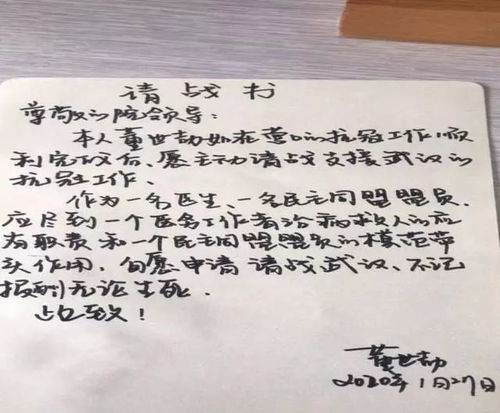 请战书
尊敬的院领导:
本人董世劫如在营口的抗冠工作顺
利完成后、愿主动请战支援武汉的
抗冠工作、
作为一名医生、一名民主同盟盟员、
应尽到一个医务工作者治病救人的应
有职责和一个民主同盟盟员的模范带
头作用、自愿申请 请战武汉、不记
报酬无论生死.
此致!
董世劫
2020年1月27日